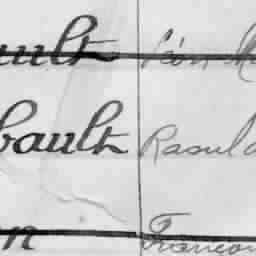 ault Léon M
bault Raoul
n François